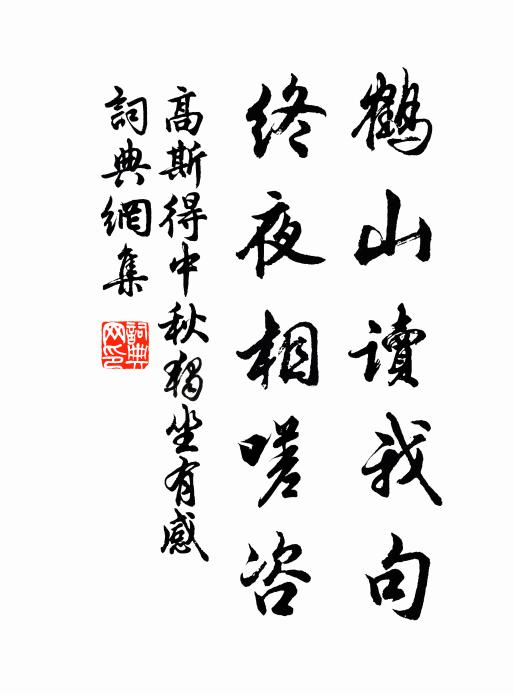 鶴山讀我句
終夜相嗟咨
高斯得中秋獨坐有感
詞典網集
詞典網印